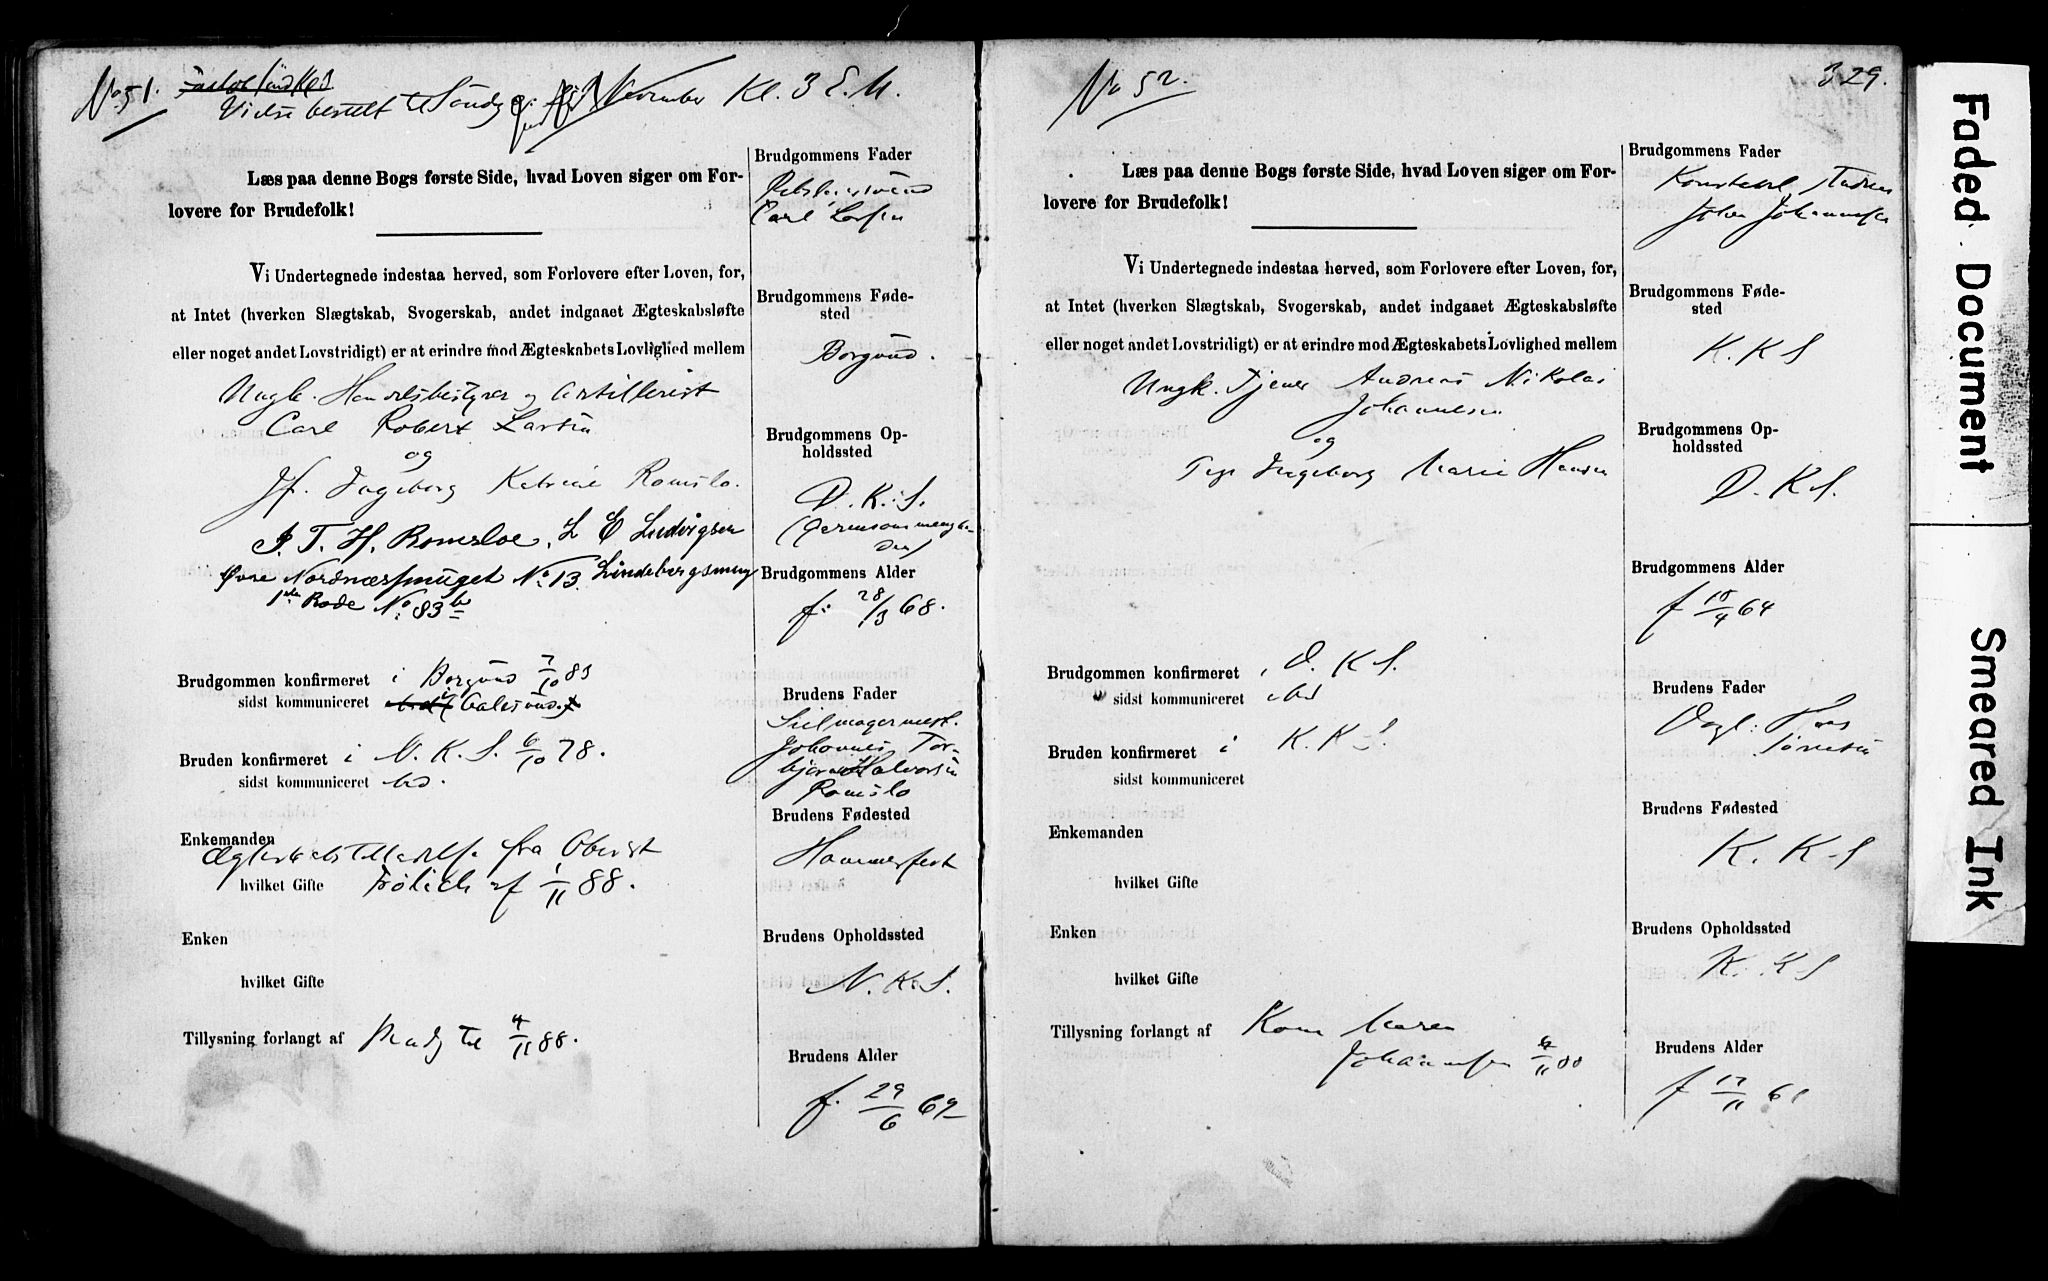 No 51.
Vielse bestilt til November Kl. 3 E. M.
Læs paa denne Bogs første Side, hvad Loven siger om For-
lovere for Brudefolk!
Vi Undertegnede indestaa herved, som Forlovere efter Loven, for,
at Intet (hverken Slægtskab, Svogerskab, andet indgaaet Ægteskabsløfte
eller noget andet Lovstridigt) er at erindre mod Ægteskabets Lovlighed mellem
Ungk. Handelsbestyrer og Artillerist
Carl Robert Larsen
og
Jf. Ingeborg Katrine Romslo.
J. T. H. Romsloe, L E Ludvigsen
Øvre Nordnæssmuget No. 13. Lindebergsmug
1ste Rode No. 83 b
Brudgommen konfirmeret i Borgund 7/10 83
sidst kommuniceret
Bruden konfirmeret i N. K. S. 6/10 78.
sidst kommuniceret ibd.
Enkemanden
Ægteskabstilladelse fra Oberst
hvilket Gifte Frölich af 1/11 88.
Enken
hvilket Gifte
Tillysning forlangt af Brudg til 4/11 88.
Brudgommens Fader
Carl Larsen
Brudgommens Føde-
sted
Borgund.
Brudgommens Op-
holdssted
D. K. S.
Brudgommens Alder
f. 28/3 68.
Brudens Fader
Seilmagermest.
Johannes Tor-
bjørn Halvorsen
Romslo
Brudens Fødested
Hammerfest
Brudens Opholdssted
N. K. S.
Brudens Alder
f. 29/6 62
No 52.
329.
Læs paa denne Bogs første Side, hvad Loven siger om For-
lovere for Brudefolk!
Vi Undertegnede indestaa herved, som Forlovere efter Loven, for,
at Intet (hverken Slægtskab, Svogerskab, andet indgaaet Ægteskabsløfte
eller noget andet Lovstridigt) er at erindre mod Ægteskabets Lovlighed mellem
Ungk. Tjener Andreas Nikolai
Johannesen
og
Pige Ingeborg Marie Hansen
Brudgommen konfirmeret i D. K S.
sidst kommuniceret ibd
Bruden konfirmeret i K. K S.
sidst kommuniceret
Enkemanden
hvilket Gifte
Enken
hvilket Gifte
Tillysning forlangt af Kone Maren
Johannesen
Brudgommens Fader
Johan Johannesen
Brudgommens Føde-
sted
K. K S
Brudgommens Op-
holdssted
D. K S.
Brudgommens Alder
f 10/4 64
Brudens Fader
Hans
Brudens Fødested
K. K S
Brudens Opholdssted
K. K S
Brudens Alder
Faded Document
Smeared Ink